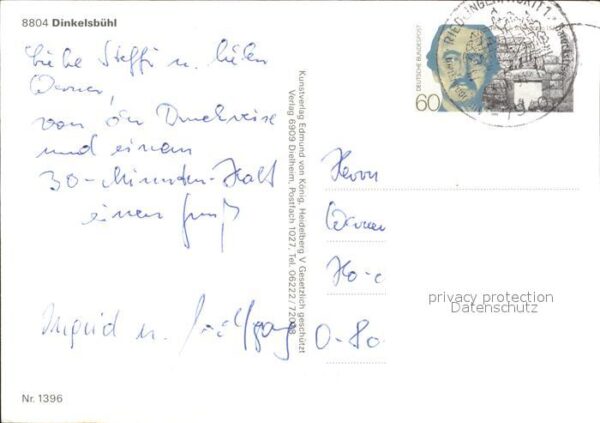 8804 Dinkelsbühl
Liebe Steffi u. lieber
Werner,
von der Durchreise
und einem
30-Minuten-Halt
einen Gruß
Ingrid u. Wolfgang
Nr. 1396
Kunstverlag Edmund von König, Heidelberg V Gesetzlich geschützt
Verlag 6909 Dielheim, Postfach 1027, Tel. 06222 / 72028
DEUTSCHE BUNDESPOST
60
RIEDLINGEN, WÜRTT 1
Herrn
Werner
Ho-
D-80
privacy protection
Datenschutz